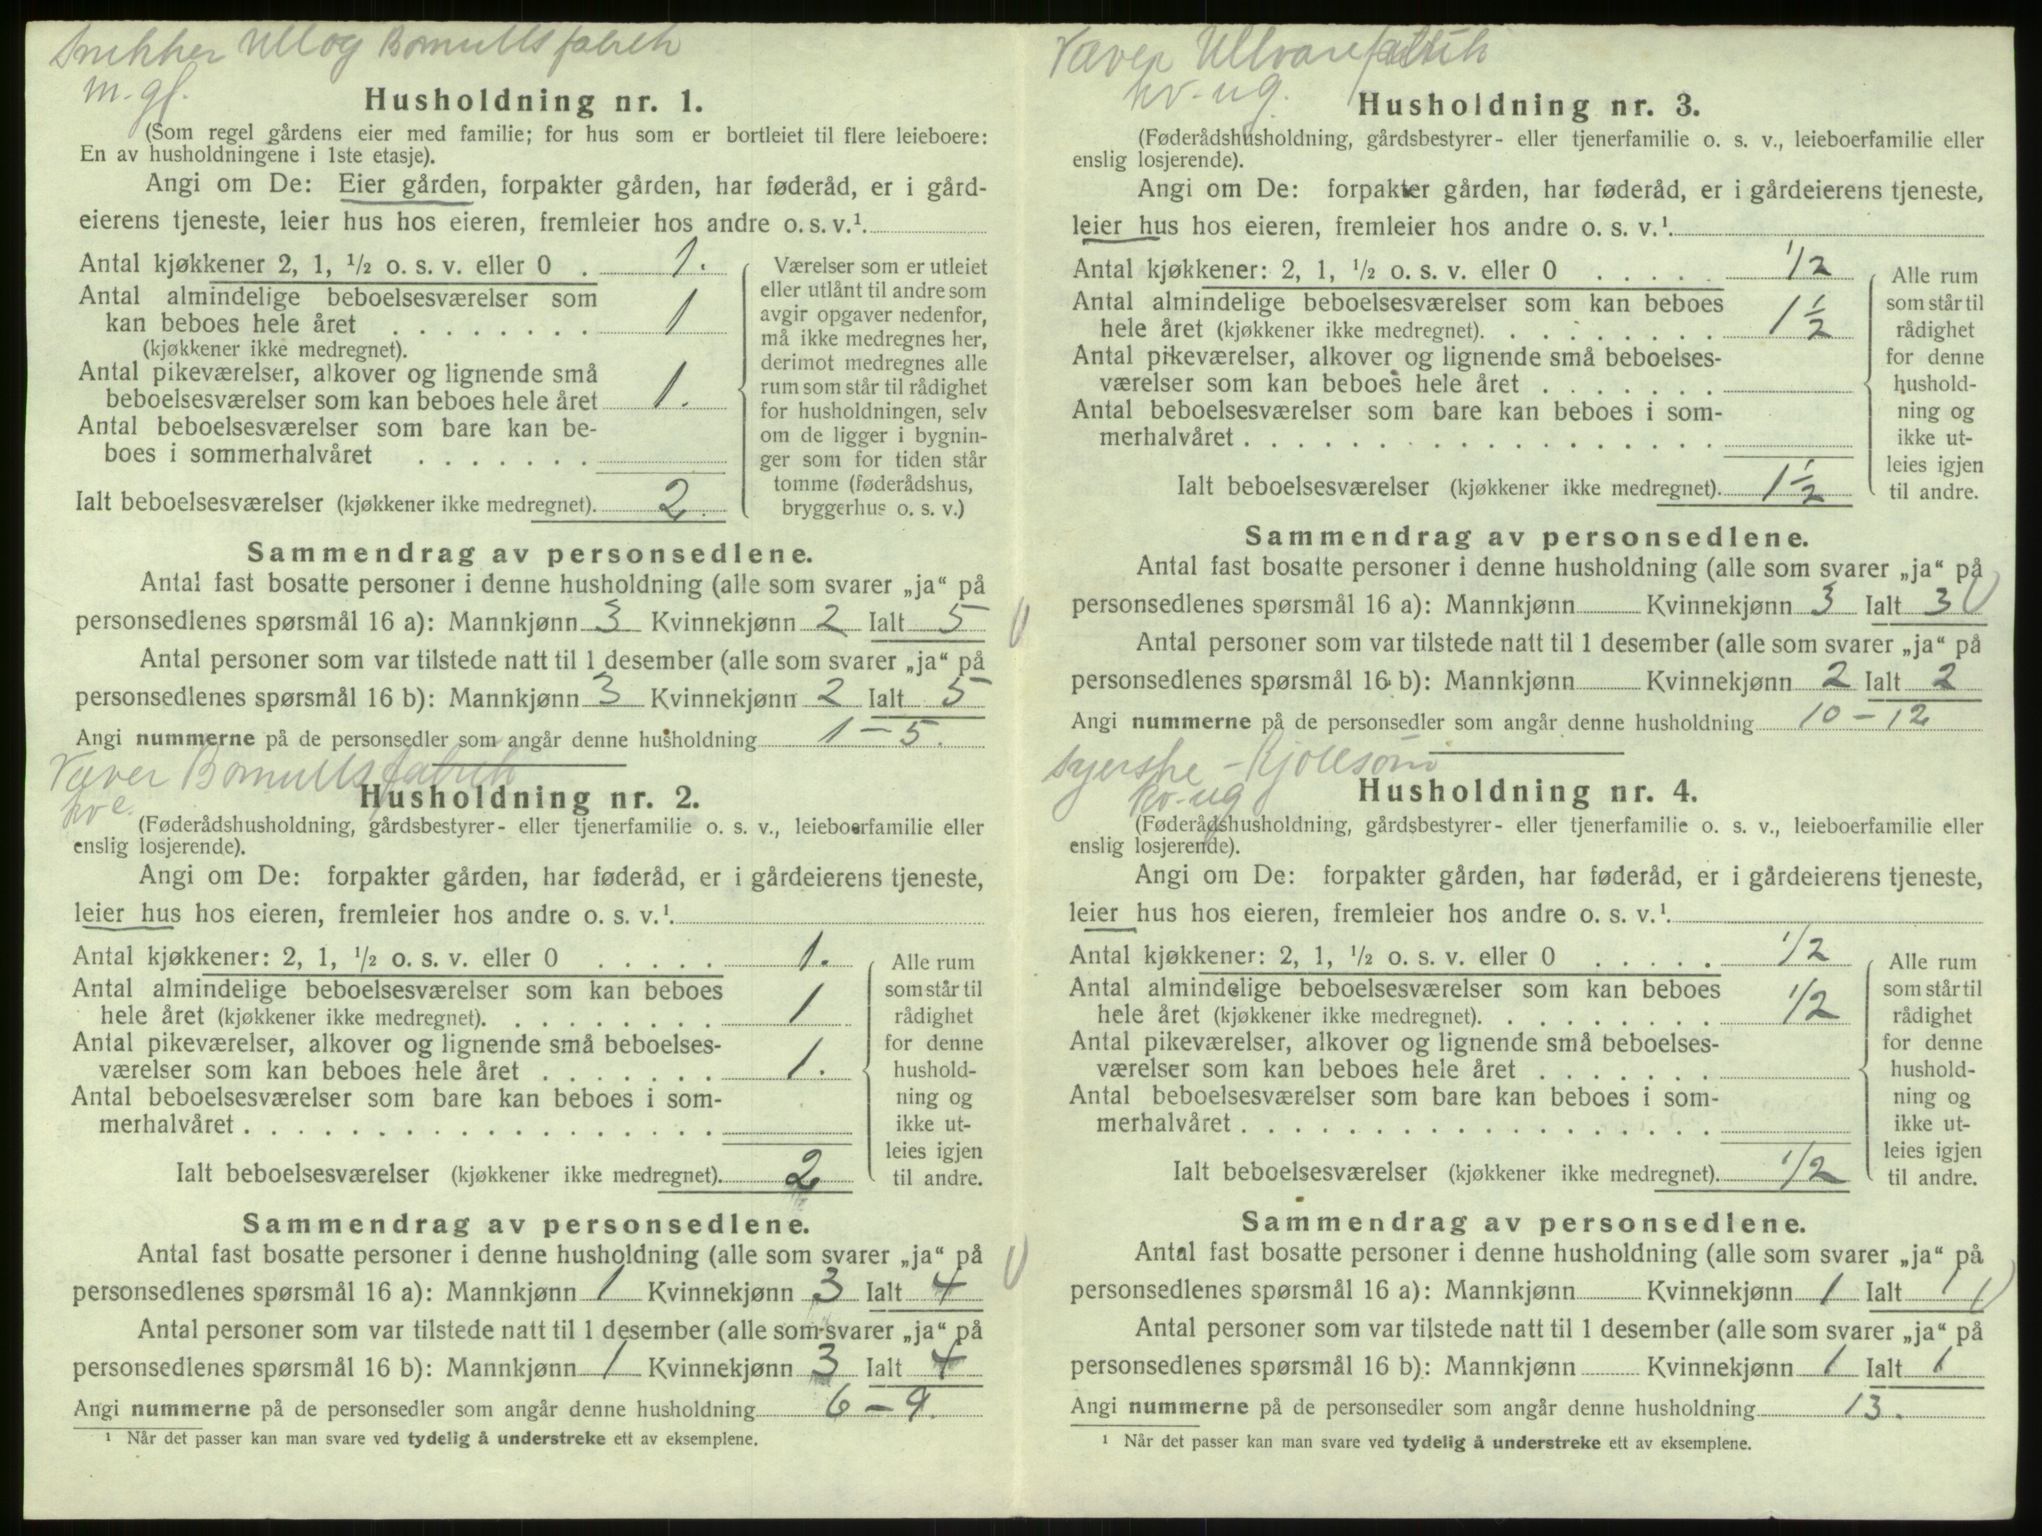 Snekker Ull og Bomullsfabrik
m. gf.
Husholdning nr. 1.
(Som regel gårdens eier med familie; for hus som er bortleiet til flere leieboere:
En av husholdningene i 1ste etasje).
Angi om De: Eier gården, forpakter gården, har føderåd, er i gård-
eierens tjeneste, leier hus hos eieren, fremleier hos andre o. s. v.¹.
Antal kjøkkener 2, 1, ½ o. s. v. eller 0 . 1.
Antal almindelige beboelsesværelser som
kan beboes hele året . . . . . . . . 1
(kjøkkener ikke medregnet).
Antal pikeværelser, alkover og lignende små
beboelsesværelser som kan beboes hele året 1.
Antal beboelsesværelser som bare kan be-
boes i sommerhalvåret . . . . . . .
Ialt beboelsesværelser (kjøkkener ikke medregnet). 2.
Værelser som er utleiet
eller utlånt til andre som
avgir opgaver nedenfor,
må ikke medregnes her,
derimot medregnes alle
rum som står til rådighet
for husholdningen, selv
om de ligger i bygnin-
ger som for tiden står
tomme (føderådshus,
bryggerhus o. s. v.)
Sammendrag av personsedlene.
Antal fast bosatte personer i denne husholdning (alle som svarer „ja“ på
personsedlenes spørsmål 16 a): Mannkjønn 3 Kvinnekjønn 2 Ialt 5
Antal personer som var tilstede natt til 1 desember (alle som svarer „ja“ på
personsedlenes spørsmål 16 b): Mannkjønn 3 Kvinnekjønn 2 Ialt 5
Angi nummerne på de personsedler som angår denne husholdning 1 – 5.
Væver Bomullsfabrik
kv e.
Husholdning nr. 2.
(Føderådshusholdning, gårdsbestyrer- eller tjenerfamilie o. s. v., leieboerfamilie eller
enslig losjerende).
Angi om De: forpakter gården, har føderåd, er i gårdeierens tjeneste,
leier hus hos eieren, fremleier hos andre o. s. v.¹.
Antal kjøkkener: 2, 1, ½ o. s. v. eller 0 . . . . . 1.
Antal almindelige beboelsesværelser som kan beboes
hele året (kjøkkener ikke medregnet). . . . . . . . . 1
Antal pikeværelser, alkover og lignende små beboelses-
værelser som kan beboes hele året . . . . . . . 1.
Antal beboelsesværelser som bare kan beboes i som-
merhalvåret . . . . . . . . . . . . . . . . . .
Ialt beboelsesværelser (kjøkkener ikke medregnet). 2
Alle rum
som står til
rådighet
for denne
hushold-
ning og
ikke ut-
leies igjen
til andre.
Sammendrag av personsedlene.
Antal fast bosatte personer i denne husholdning (alle som svarer „ja“ på
personsedlenes spørsmål 16 a): Mannkjønn 1 Kvinnekjønn 3 Ialt 4
Antal personer som var tilstede natt til 1 desember (alle som svarer „ja“ på
personsedlenes spørsmål 16 b): Mannkjønn 1 Kvinnekjønn 3 Ialt 4
Angi nummerne på de personsedler som angår denne husholdning 6 – 9.
¹ Når det passer kan man svare ved tydelig å understreke ett av eksemplene.
Væver Ullvarefabrik
kv-ug.
Husholdning nr. 3.
(Føderådshusholdning, gårdsbestyrer- eller tjenerfamilie o. s. v., leieboerfamilie eller
enslig losjerende).
Angi om De: forpakter gården, har føderåd, er i gårdeierens tjeneste,
leier hus hos eieren, fremleier hos andre o. s. v.¹.
Antal kjøkkener: 2, 1, ½ o. s. v. eller 0 . . . . . ½
Antal almindelige beboelsesværelser som kan beboes
hele året (kjøkkener ikke medregnet). . . . . . . . . 1 ½
Antal pikeværelser, alkover og lignende små beboelses-
værelser som kan beboes hele året . . . . . . .
Antal beboelsesværelser som bare kan beboes i som-
merhalvåret . . . . . . . . . . . . . . . . . .
Ialt beboelsesværelser (kjøkkener ikke medregnet). 1 ½
Alle rum
som står til
rådighet
for denne
hushold-
ning og
ikke ut-
leies igjen
til andre.
Sammendrag av personsedlene.
Antal fast bosatte personer i denne husholdning (alle som svarer „ja“ på
personsedlenes spørsmål 16 a): Mannkjønn Kvinnekjønn 3 Ialt 3
Antal personer som var tilstede natt til 1 desember (alle som svarer „ja“ på
personsedlenes spørsmål 16 b): Mannkjønn Kvinnekjønn 2 Ialt 2
Angi nummerne på de personsedler som angår denne husholdning 10 – 12
Syerske – Kjolesøm
kv-ug
Husholdning nr. 4.
(Føderådshusholdning, gårdsbestyrer- eller tjenerfamilie o. s. v., leieboerfamilie eller
enslig losjerende).
Angi om De: forpakter gården, har føderåd, er i gårdeierens tjeneste,
leier hus hos eieren, fremleier hos andre o. s. v.¹.
Antal kjøkkener: 2, 1, ½ o. s. v. eller 0 . . . . . ½
Antal almindelige beboelsesværelser som kan beboes
hele året (kjøkkener ikke medregnet). . . . . . . . . ½
Antal pikeværelser, alkover og lignende små beboelses-
værelser som kan beboes hele året . . . . . . .
Antal beboelsesværelser som bare kan beboes i som-
merhalvåret . . . . . . . . . . . . . . . . . .
Ialt beboelsesværelser (kjøkkener ikke medregnet). ½
Alle rum
som står til
rådighet
for denne
hushold-
ning og
ikke ut-
leies igjen
til andre.
Sammendrag av personsedlene.
Antal fast bosatte personer i denne husholdning (alle som svarer „ja“ på
personsedlenes spørsmål 16 a): Mannkjønn Kvinnekjønn 1 Ialt 1
Antal personer som var tilstede natt til 1 desember (alle som svarer „ja“ på
personsedlenes spørsmål 16 b): Mannkjønn Kvinnekjønn 1 Ialt 1
Angi nummerne på de personsedler som angår denne husholdning 13.
¹ Når det passer kan man svare ved tydelig å understreke ett av eksemplene.